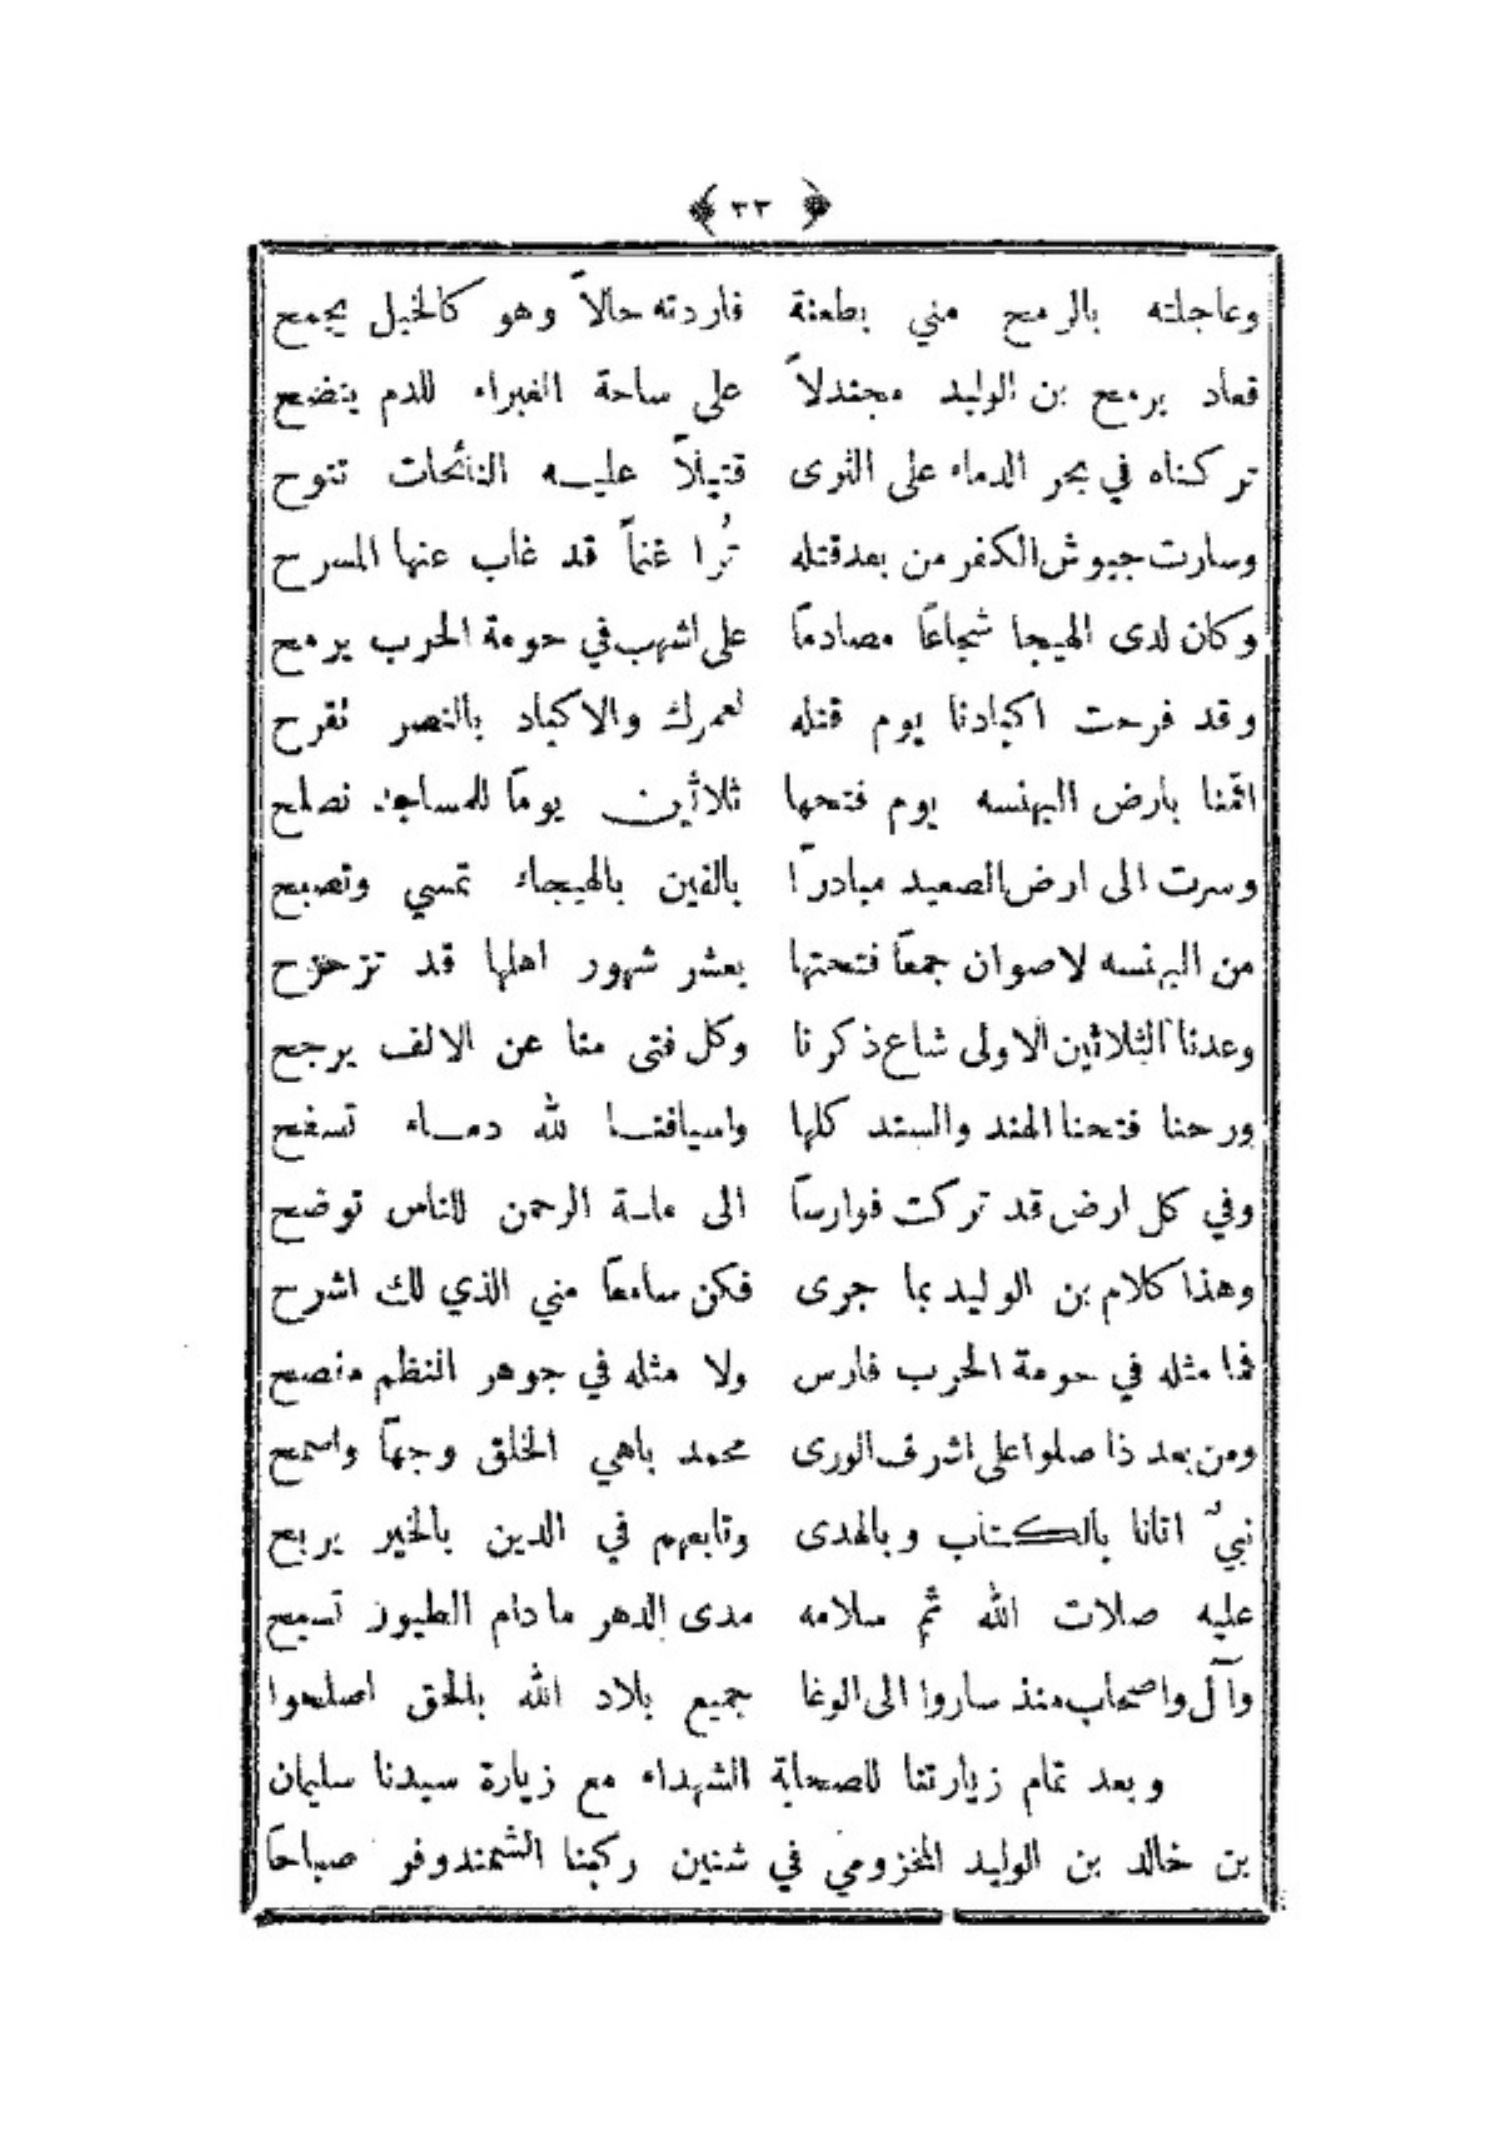 ﴿ ٣٣ ﴾
وعاجلته بالرمح مني بطعنة فاردته حالاً وهو كالخيل يجمح
فعاد برمح بن الوليد مجندلاً على ساحة الغبراء للدم ينضح
تركناه في بحر الدماء على الثرى قتيلاً عليه النائحات تنوح
وسارت جيوش الكفر من بعد قتله تُرا غنماً قد غاب عنها المسرح
وكان لدى الهيجا شجاعاً مصادماً على اشهب في حومة الحرب يرمح
وقد فرحت اكبادنا يوم قتله لعمرك والاكباد بالنصر تفرح
اقمنا بارض البهنسه يوم فتحها ثلاثين يوماً للمساجد نصلح
وسرت الى ارض الصعيد مبادراً بالفين بالهيجاء تمسي وتصبح
من البهنسه لاصوان جمعاً فتحتها بعشر شهور اهلها قد تزحزح
وعدنا الثلاثين الاولى شاع ذكرنا وكل فتى منا عن الالف يرجح
ورحنا فتحنا الهند والسند كلها واسيافنا لله دماء تسفح
وفي كل ارض قد تركت فوارساً الى ملة الرحمن للناس توضح
وهذا كلام بن الوليد بما جرى فكن سامعاً مني الذي لك اشرح
فما مثله في حومة الحرب فارس ولا مثله في جوهر النظم منصح
ومن بعد ذا صلوا على اشرف الورى محمد باهي الخلق وجهاً واسمح
نبيٌ اتانا بالكتاب وبالهدى وتابعهم في الدين بالخير يربح
عليه صلات الله ثم سلامه مدى الدهر ما دام الطيور تسيح
وآل واصحاب منذ ساروا الى الوغا جميع بلاد الله بالحق اصلحوا
وبعد تمام زيارتنا للصحابة الشهداء مع زيارة سيدنا سليمان
بن خالد بن الوليد المخزومي في شنين ركبنا الشمندوفر صباحاً